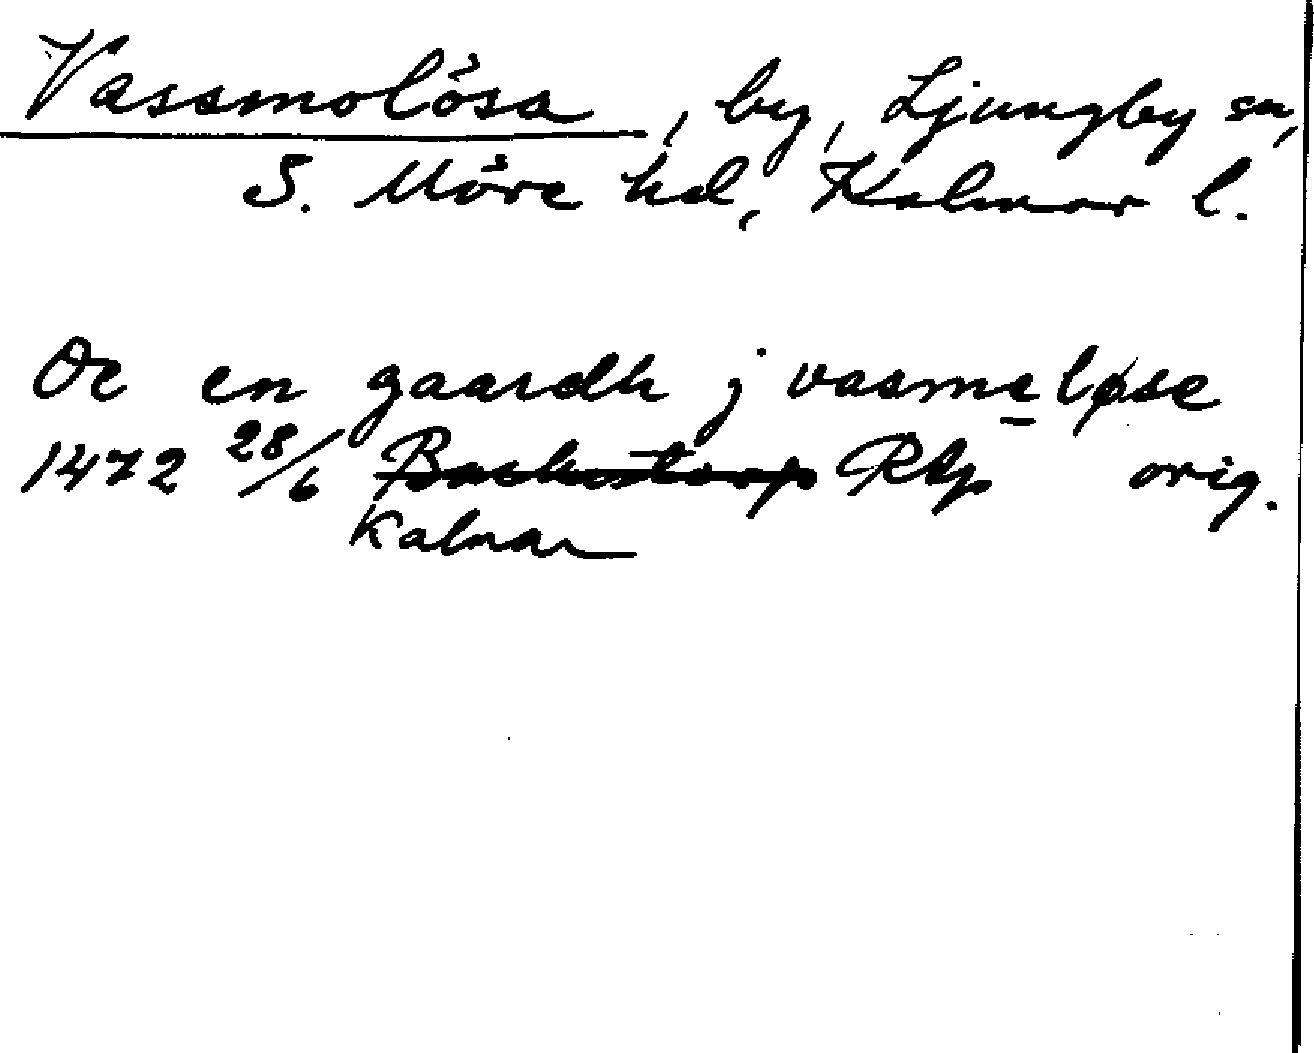 Vassmolösa, by, Ljungby sn,
S. Möre hd, Kalmar l.
Oc en gaardh j vasmeløse
1472 28/6 RAp orig.
Kalmar